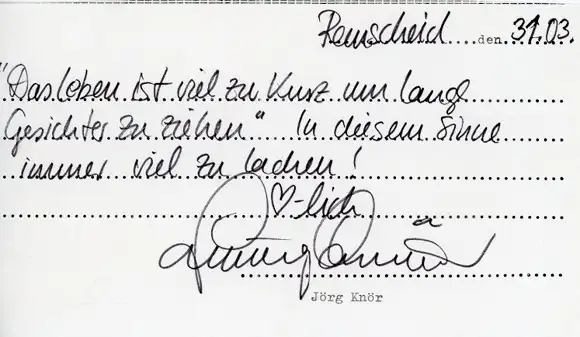 Remscheid....den..31.03.
"Das Leben ist viel zu kurz um lange
Gesichter zu ziehen" In diesem Sinne
immer viel zu lachen!
♡-lich
Jörg Knör